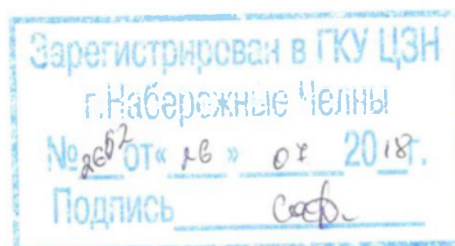 Зарегистрирован в ГКУ ЦЗН
г.Набережные Челны
№ 2662 от« 26 » 07 2018г.
Подпись